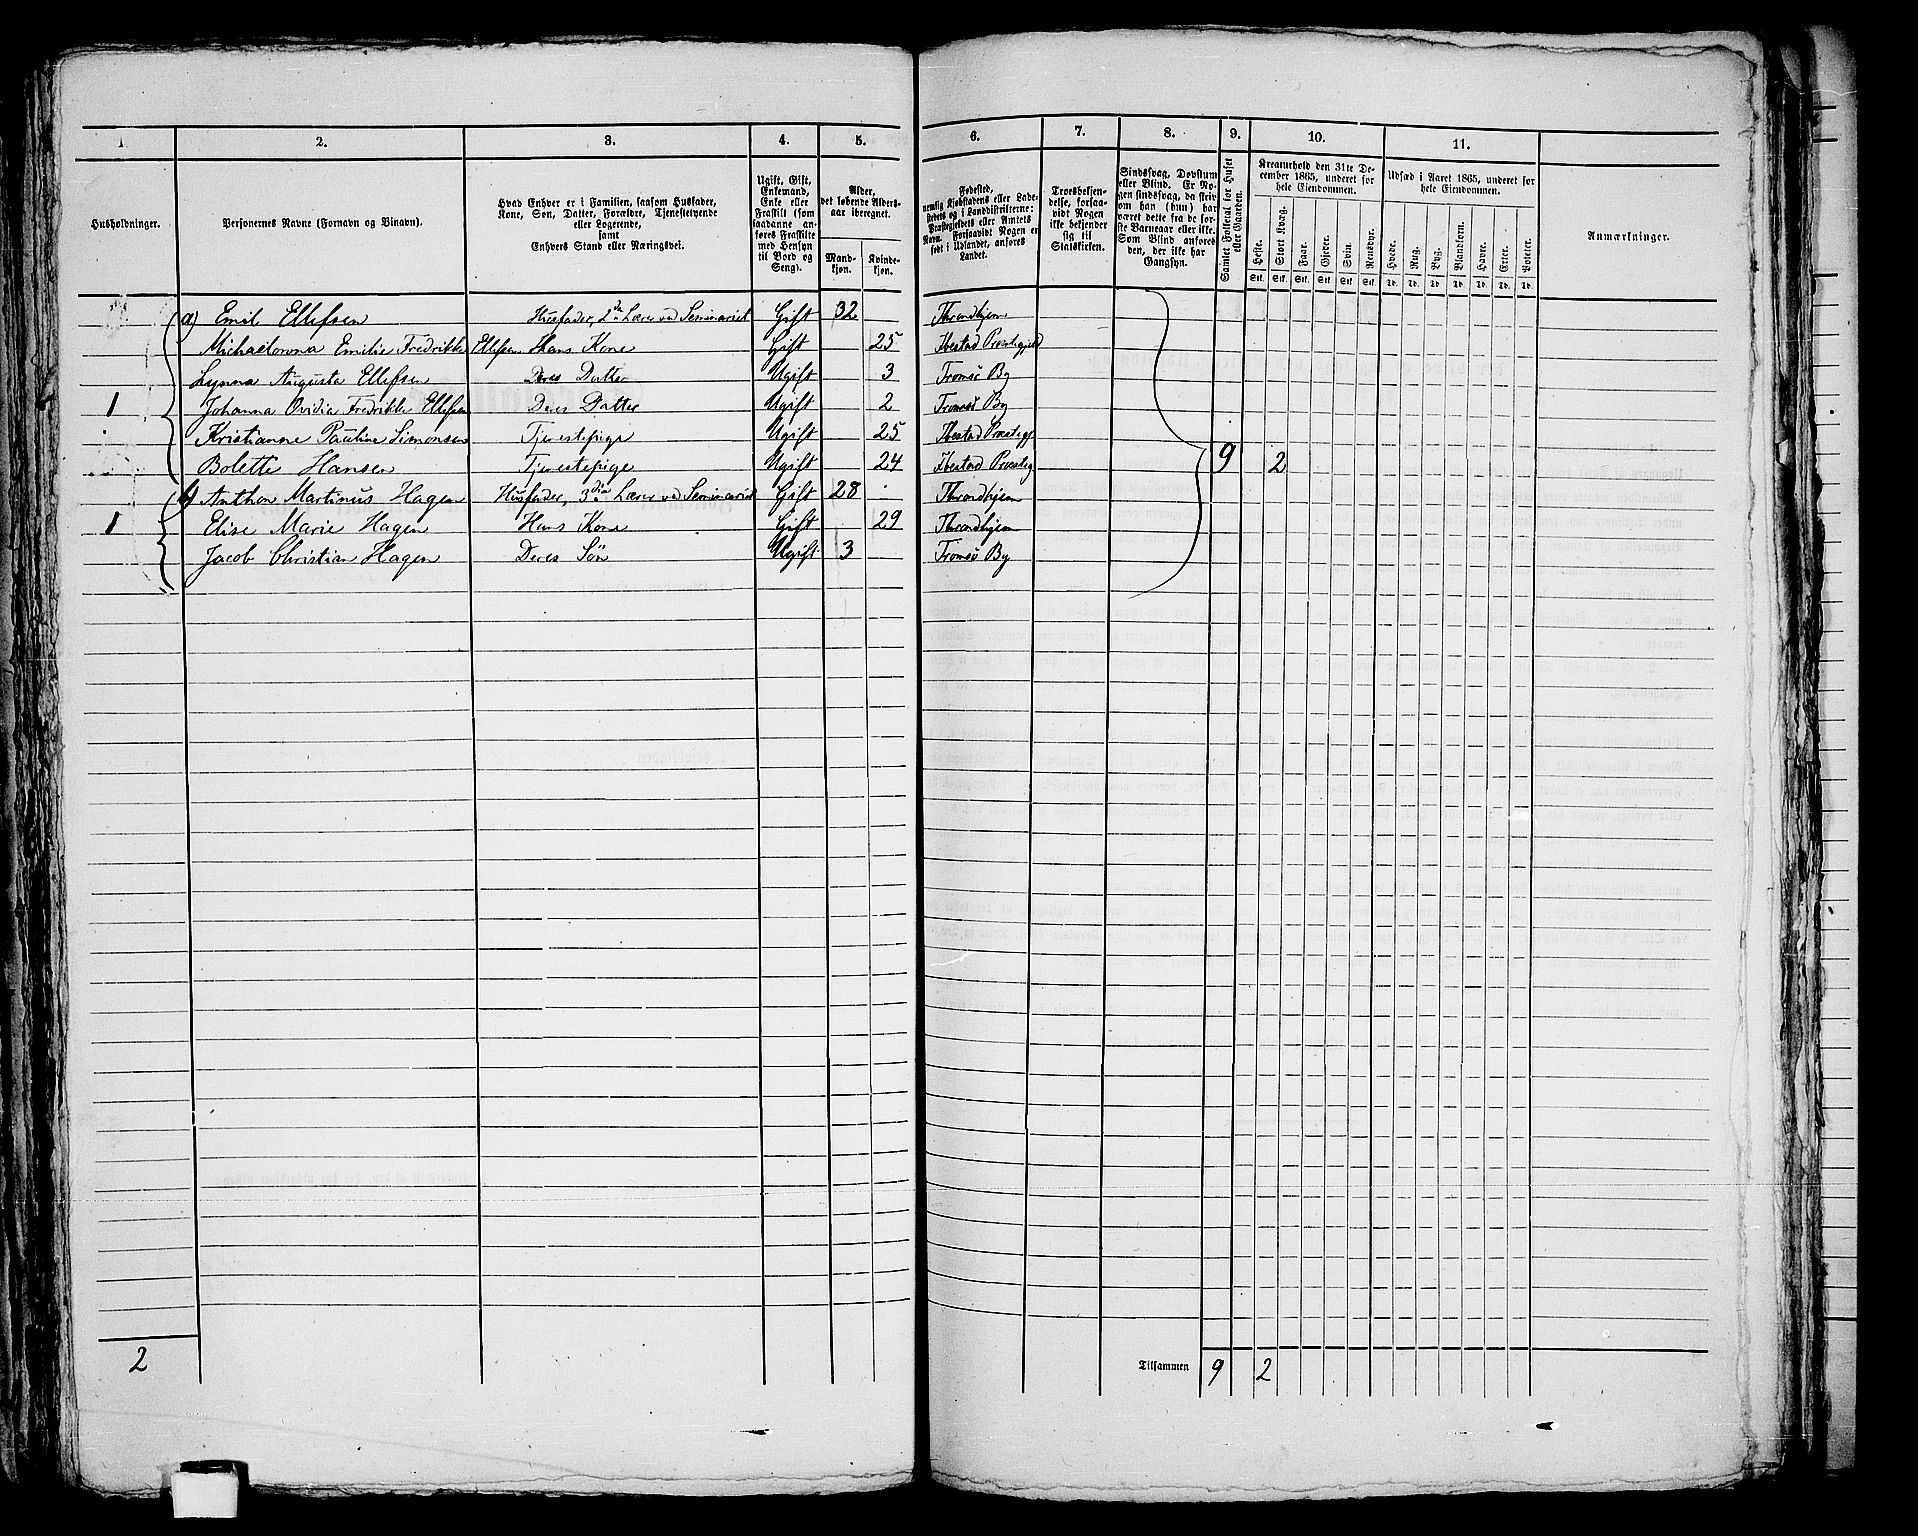 1 2. 3. 4. 5. 6. 7. 8. 9. 10. 11.
Husholdninger.
Personernes Navne (Fornavn og Binavn).
Hvad Enhver er i Familien, saasom Husfader,
Kone, Søn, Datter, Forældre, Tjenestetyende
eller Logerende,
samt
Enhvers Stand eller Næringsvei.
Ugift, Gift,
Enkemand,
Enke eller
Fraskilt (som
saadanne an-
føres Fraskilte
med Hensyn
til Bord og
Seng).
Alder,
det løbende Alders-
aar iberegnet.
Mand-
kjøn.
Kvinde-
kjøn.
Fødested,
nemlig Kjøbstadens eller Lade-
stedets og i Landdistrikterne:
Præstegjeldets eller Amtets
Navn. Forsaavidt Nogen er
født i Udlandet, anføres
Landet.
Troesbekjen-
delse, forsaa-
vidt Nogen
ikke bekjender
sig til
Statskirken.
Sindssvag, Døvstum
eller Blind. Er No-
gen sindssvag, da skriv
om han (hun) har
været dette fra de før-
ste Barneaar eller ikke.
Som Blind anføres
den, der ikke har
Gangsyn.
Samlet Folketal for Huset
eller Gaarden.
Kreaturhold den 31te De-
cember 1865, underet for
hele Eiendommen.
Heste. Stort Kvæg. Faar. Gjeter. Svin. Rensdyr.
Stk. Stk. Stk. Stk. Stk. Stk.
Udsæd i Aaret 1865, underet for
hele Eiendommen.
Hvede. Rug. Byg. Blandkorn. Havre. Erter. Poteter.
Td. Td. Td. Td. Td. Td. Td.
Anmærkninger.
a) Emil Ellefsen Husfader, 2den Lærer ved Seminariet Gift 32 Throndhjem
Michaelovna Emilie Fredrikke Ellefsen Hans Kone Gift 25 Ibestad Præstegjeld
Lynna Augusta Ellefsen Deres Datter Ugift 3 Tromsø By
1 Johanna Ovidia Fredrikke Ellefsen Deres Datter Ugift 2 Tromsø By
Kristianne Pauline Simonsen Tjenestepige Ugift 25 Ibestad Præstegj
Bolette Hansen Tjenestepige Ugift 24 Ibestad Præsteg 9 2
b) Anthon Martinus Hagen Husfader, 3die Lærer ved Seminariet Gift 28 Throndhjem
1 Elise Marie Hagen Hans Kone Gift 29 Throndhjem
Jacob Christian Hagen Deres Søn Ugift 3 Tromsø By
2 Tilsammen 9 2